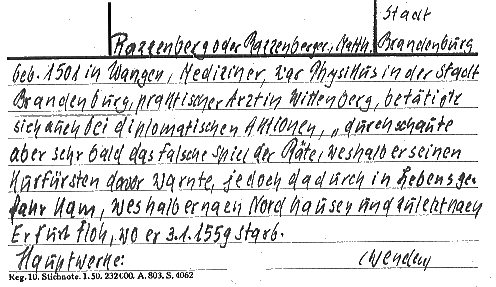 Stadt
Ratzenberg oder Ratzenberger, Matth. Brandenburg
geb. 1501 in Wangen, Mediziner, war Physikus in der Stadt
Brandenburg, praktischer Arzt in Wittenberg, betätigte
sich auch bei diplomatischen Aktionen, „durchschaute
aber sehr bald das falsche Spiel der Räte, weshalb er seinen
Kurfürsten davor warnte, jedoch dadurch in Lebensge-
fahr kam, weshalb er nach Nordhausen und zuletzt nach
Erfurt floh, wo er 3.1.1559 starb.
Hauptwerke: (wenden)
Keg. 10. Stichnote. 1. 50. 232000. A. 803. S. 4062